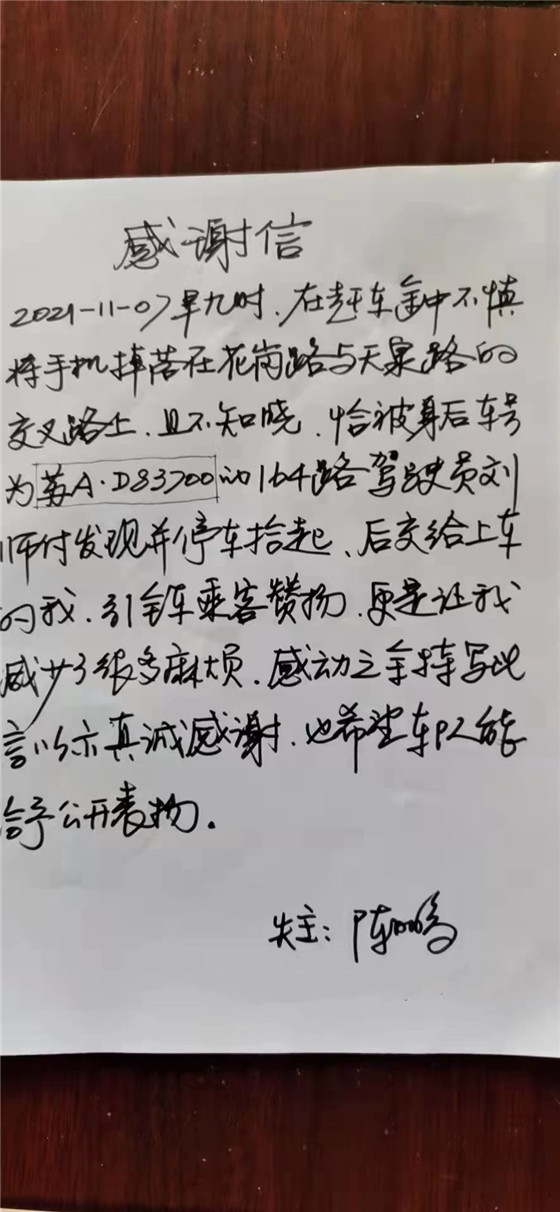 感谢信
2021-11-07早九时,在赶车途中不慎
将手机掉落在花岗路与天泉路的
交叉路上、且不知晓,恰被身后车号
为苏A·D83700的164路驾驶员刘
师付发现并停车拾起、后交给上车
的我,引全车乘客赞扬,更是让我
减少了很多麻烦,感动之余特写此
言以示真诚感谢,也希望车队能
给予公开表扬。
失主:陈鸣